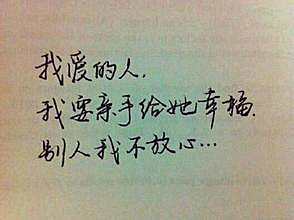 我爱的人，
我要亲手给她幸福.
别人我不放心…